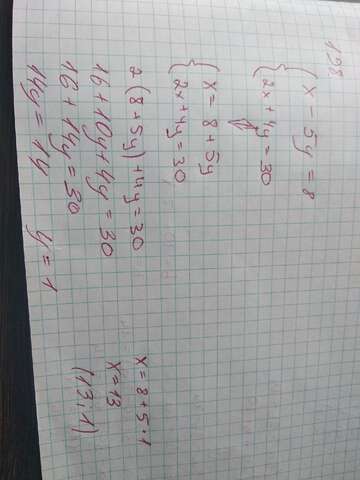 198
{ x - 5y = 8
{ 2x + 4y = 30
⇕
{ x = 8 + 5y
{ 2x + 4y = 30
2(8 + 5y) + 4y = 30
16 + 10y + 4y = 30
16 + 14y = 30
14y = 14 y = 1
x = 8 + 5 · 1
x = 13
(13; 1)